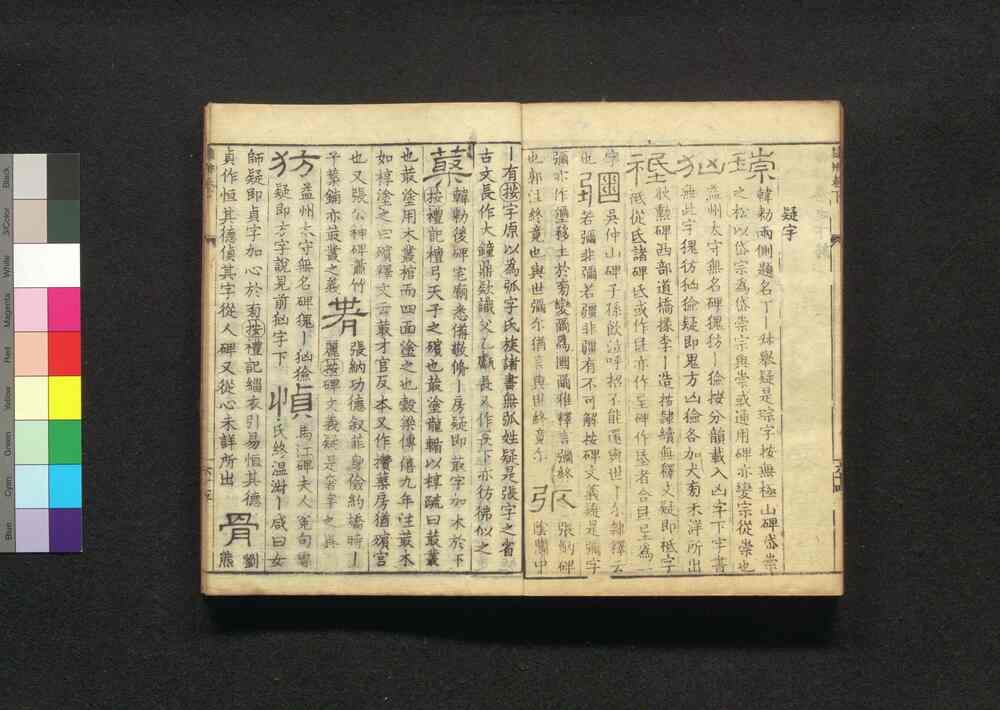 疑字
韓勑兩側題名丨丨妹舉疑是琮字按無極山碑岱崇
之松以岱宗為岱崇宗與崇或通用碑亦變宗從崇也
益州太守無名碑彷丨獫按分韻載入凶字下字書
無此字彷獫疑即鬼方凶獫各加犬旁未詳所出
狄勲碑西部道橋掾李丨造按隸續無釋文疑即祗字
祗從氐諸碑氐或作亦作碑作者合目為一
字 吳仲山碑子孫飲泣呼招不能還與世丨尒隸釋云
也 若彌非彌若疆非疆有不可解按碑文義疑是彌字
彌亦作移土於旁變爾為爾雅釋言彌終 張納碑
也郭注終竟也與世彌尒猶言與世終竟尒 弫 陰蘭中
丨有按字原以為弧字氏族諸書無弧姓疑是張字之省
古文長作大鐘鼎款識父乙甗長又作下亦彷彿似之
韓勑後碑宅廟悉備敬脩丨房疑即菆字加木於下
按禮記檀弓天子之殯也菆塗龍輴以椁疏曰菆叢
也菆塗用木叢棺而四面塗之也穀梁傳僖九年注菆木
如椁塗之曰殯釋文云菆才官反本又作欑房猶殯宮
也又張公神碑蕭竹 張納功德叙菲身儉約撟時丨
子鋪亦菆叢之義 麗按碑文義疑是奢字之異
犲 益州太守無名碑丨獫 馬江碑夫人冤句曹
疑即方字說見前字下 愩 氏終溫淑丨咸曰女
師疑即貞字加心於旁按禮記緇衣引易恒其德
貞作恒其德偵其字從人碑又從心未詳所出 骨 劉
熊